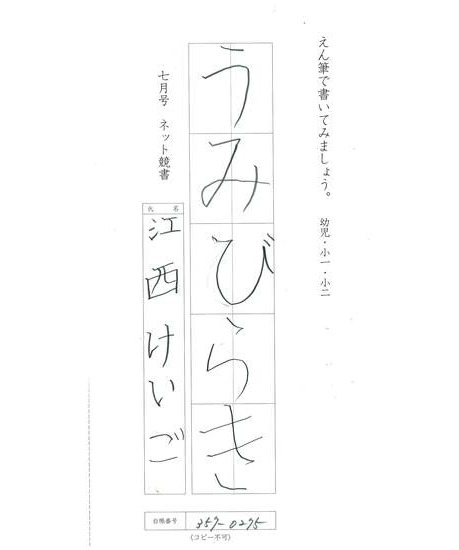 えん筆で書いてみましょう。
幼児・小一・小二
うみびらき
七月号 ネット競書
氏名
江西けいご
台帳番号 357-0275
(コピー不可)